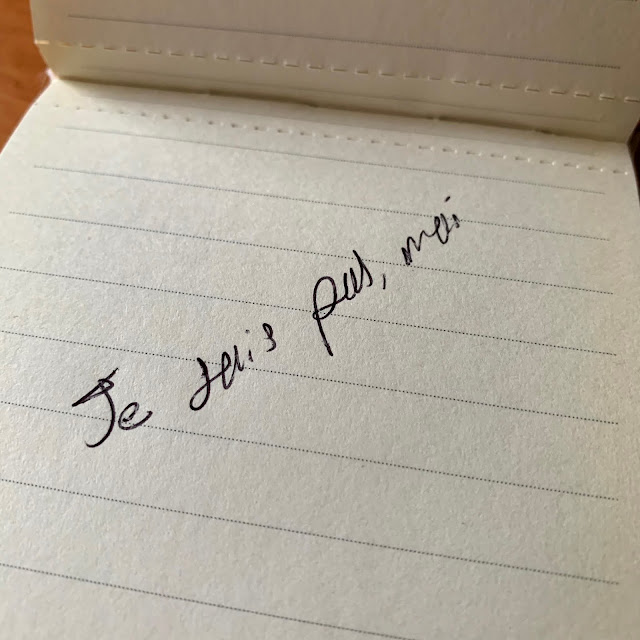 Je sais pas, moi